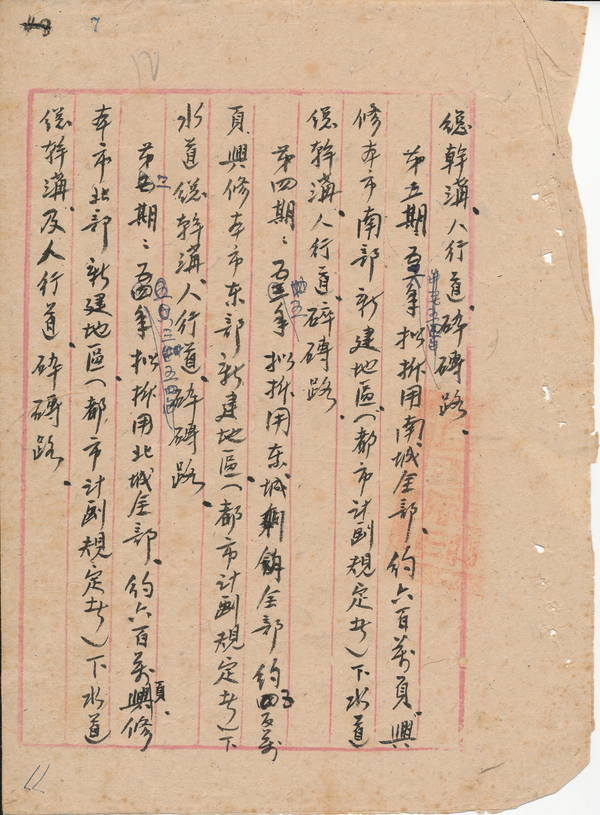 7
總幹溝、人行道、碎磚路。
第五期：年拟拆用南城全部、約六百萬頁、興
修本市南部新建地區（都市計劃規定者）下水道
總幹溝、人行道、碎磚路。
第四期：年拟拆用东城剩餘全部約百萬
頁興修本市东部新建地區（都市計劃規定者）下
水道總幹溝、人行道、碎磚路。
第三期：年拟拆用北城全部、約六百萬頁興修
本市北部新建地區（都市計劃規定者）下水道
總幹溝、及人行道、碎磚路。